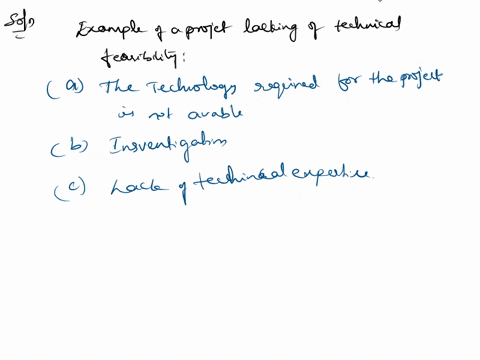 Soln Example of a projet lacking of technical
feasibility:
(a) The Technology required for the project
is not avable
(b) Insventigations
(c) Lack of techinical expertise.